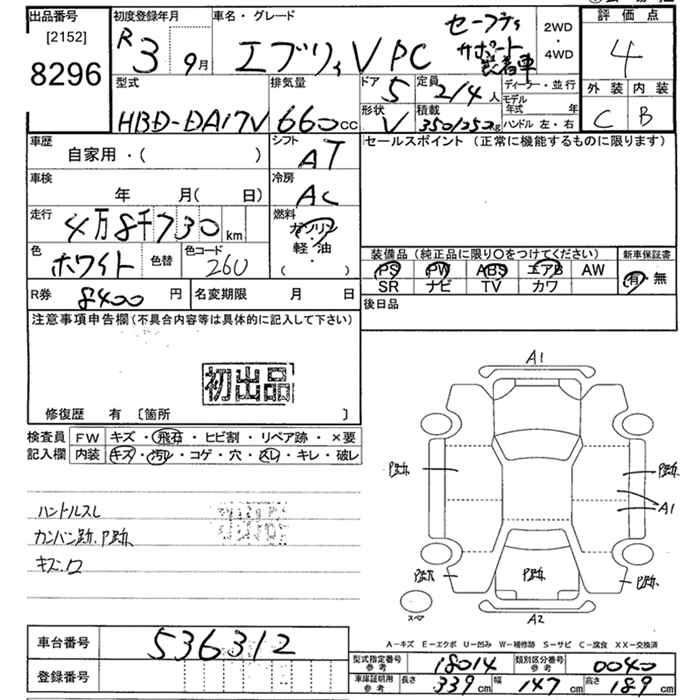 出品番号
[2152]
8296
初度登録年月
R3 9月
車名・グレード
エブリィ V PC
セーフティ
サポート
装着車
2WD
・
4WD
評価点
4
外装 内装
C B
型式
HBD-DA17V
排気量
660cc
ドア
5
定員
2/4人
ディーラー・並行
形状
V
積載
350/250kg
モデル年式 年
ハンドル 左・右
車歴
自家用・( )
シフト
AT
車検
年 月( 日)
冷房
AC
走行
4万8千730km
燃料
ガソリン
軽・油
( )
色
ホワイト
色替
色コード
26U
セールスポイント (正常に機能するものに限ります)
装備品 (純正品に限り〇をつけてください)
PS PW ABS エアB AW
SR ナビ TV カワ
新車保証書
有・無
R券 8400円
名変期限 月 日
後日品
注意事項申告欄 (不具合内容等は具体的に記入して下さい)
初出品
修復歴 有 〔箇所 〕
検査員
記入欄
FW キズ・飛石・ヒビ割・リペア跡・×要
内装 キズ・汚レ・コゲ・穴・スレ・キレ・破レ
ハンドルスレ
カンバン跡、P跡
キズ、ワ
A1
P跡
P跡
A1
P跡
P跡
P跡
スペア
A2
A-キズ E-エクボ U-凹み W-補修跡 S-サビ C-腐食 XX-交換済
車台番号
536312
登録番号
型式指定番号
参考
18014
類別区分番号
参考
0040
車庫証明用
参考
長さ 339cm 幅 147cm 高さ 189cm